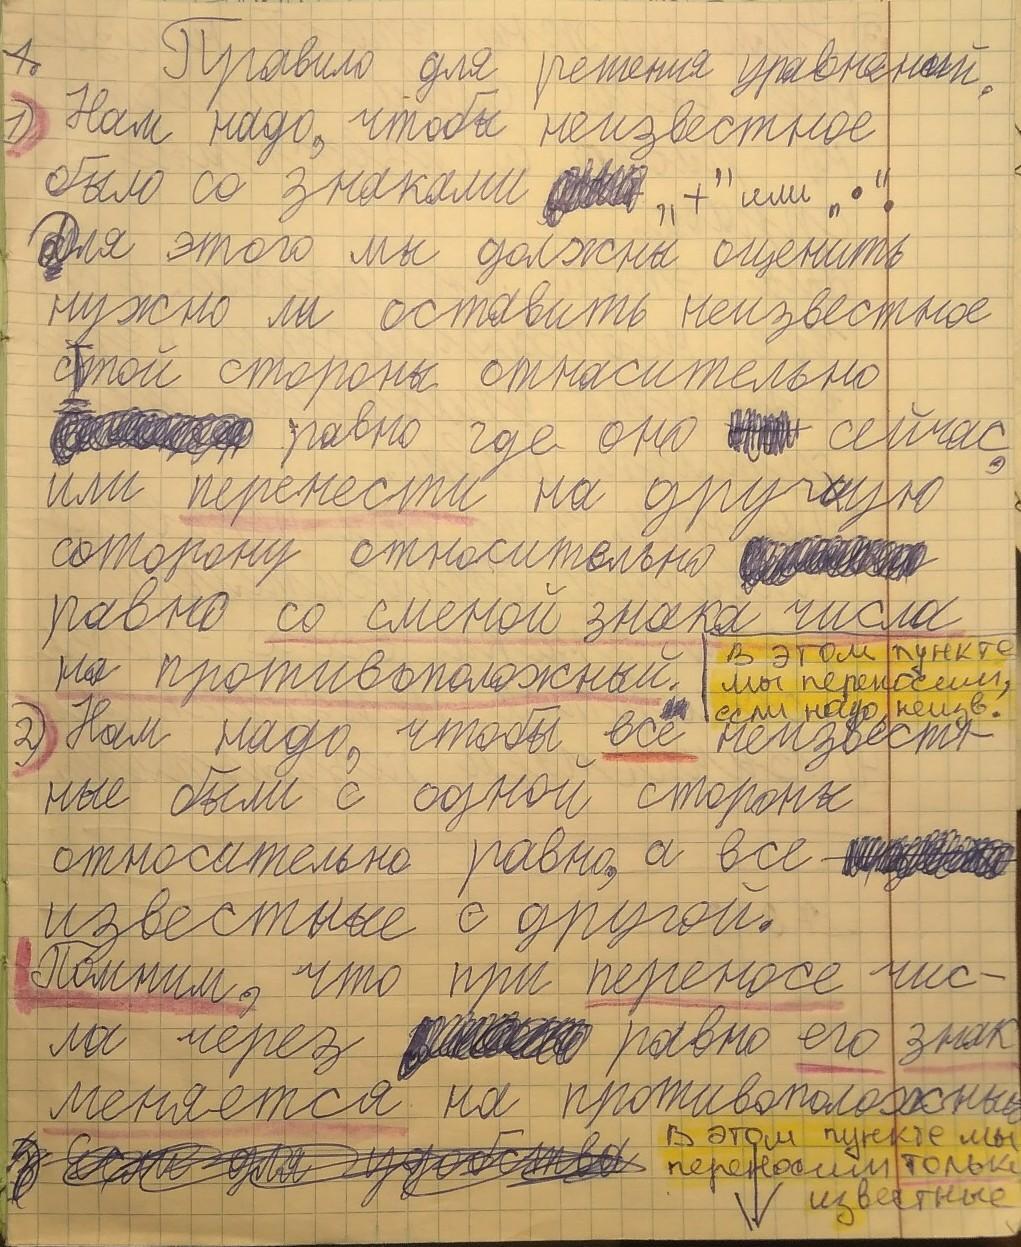 1. Правило для решения уравнений.
1) Нам надо, чтобы неизвестное
было со знаками „+” или „•”.
Для этого мы должны оценить
нужно ли оставить неизвестное
с той стороны отнасительно
равно где оно сейчас,
или перенести на другую
соторону относительно
равно со сменой знака числа
на противоположный.
В этом пункте
мы переносим,
если надо, неизв.
2) Нам надо, чтобы все неизвест-
ные были с одной стороны
относительно равно, а все
известные с другой.
Помним, что при переносе чис-
ла через равно его знак
меняется на противоположный
В этом пункте мы
переносим только
известные